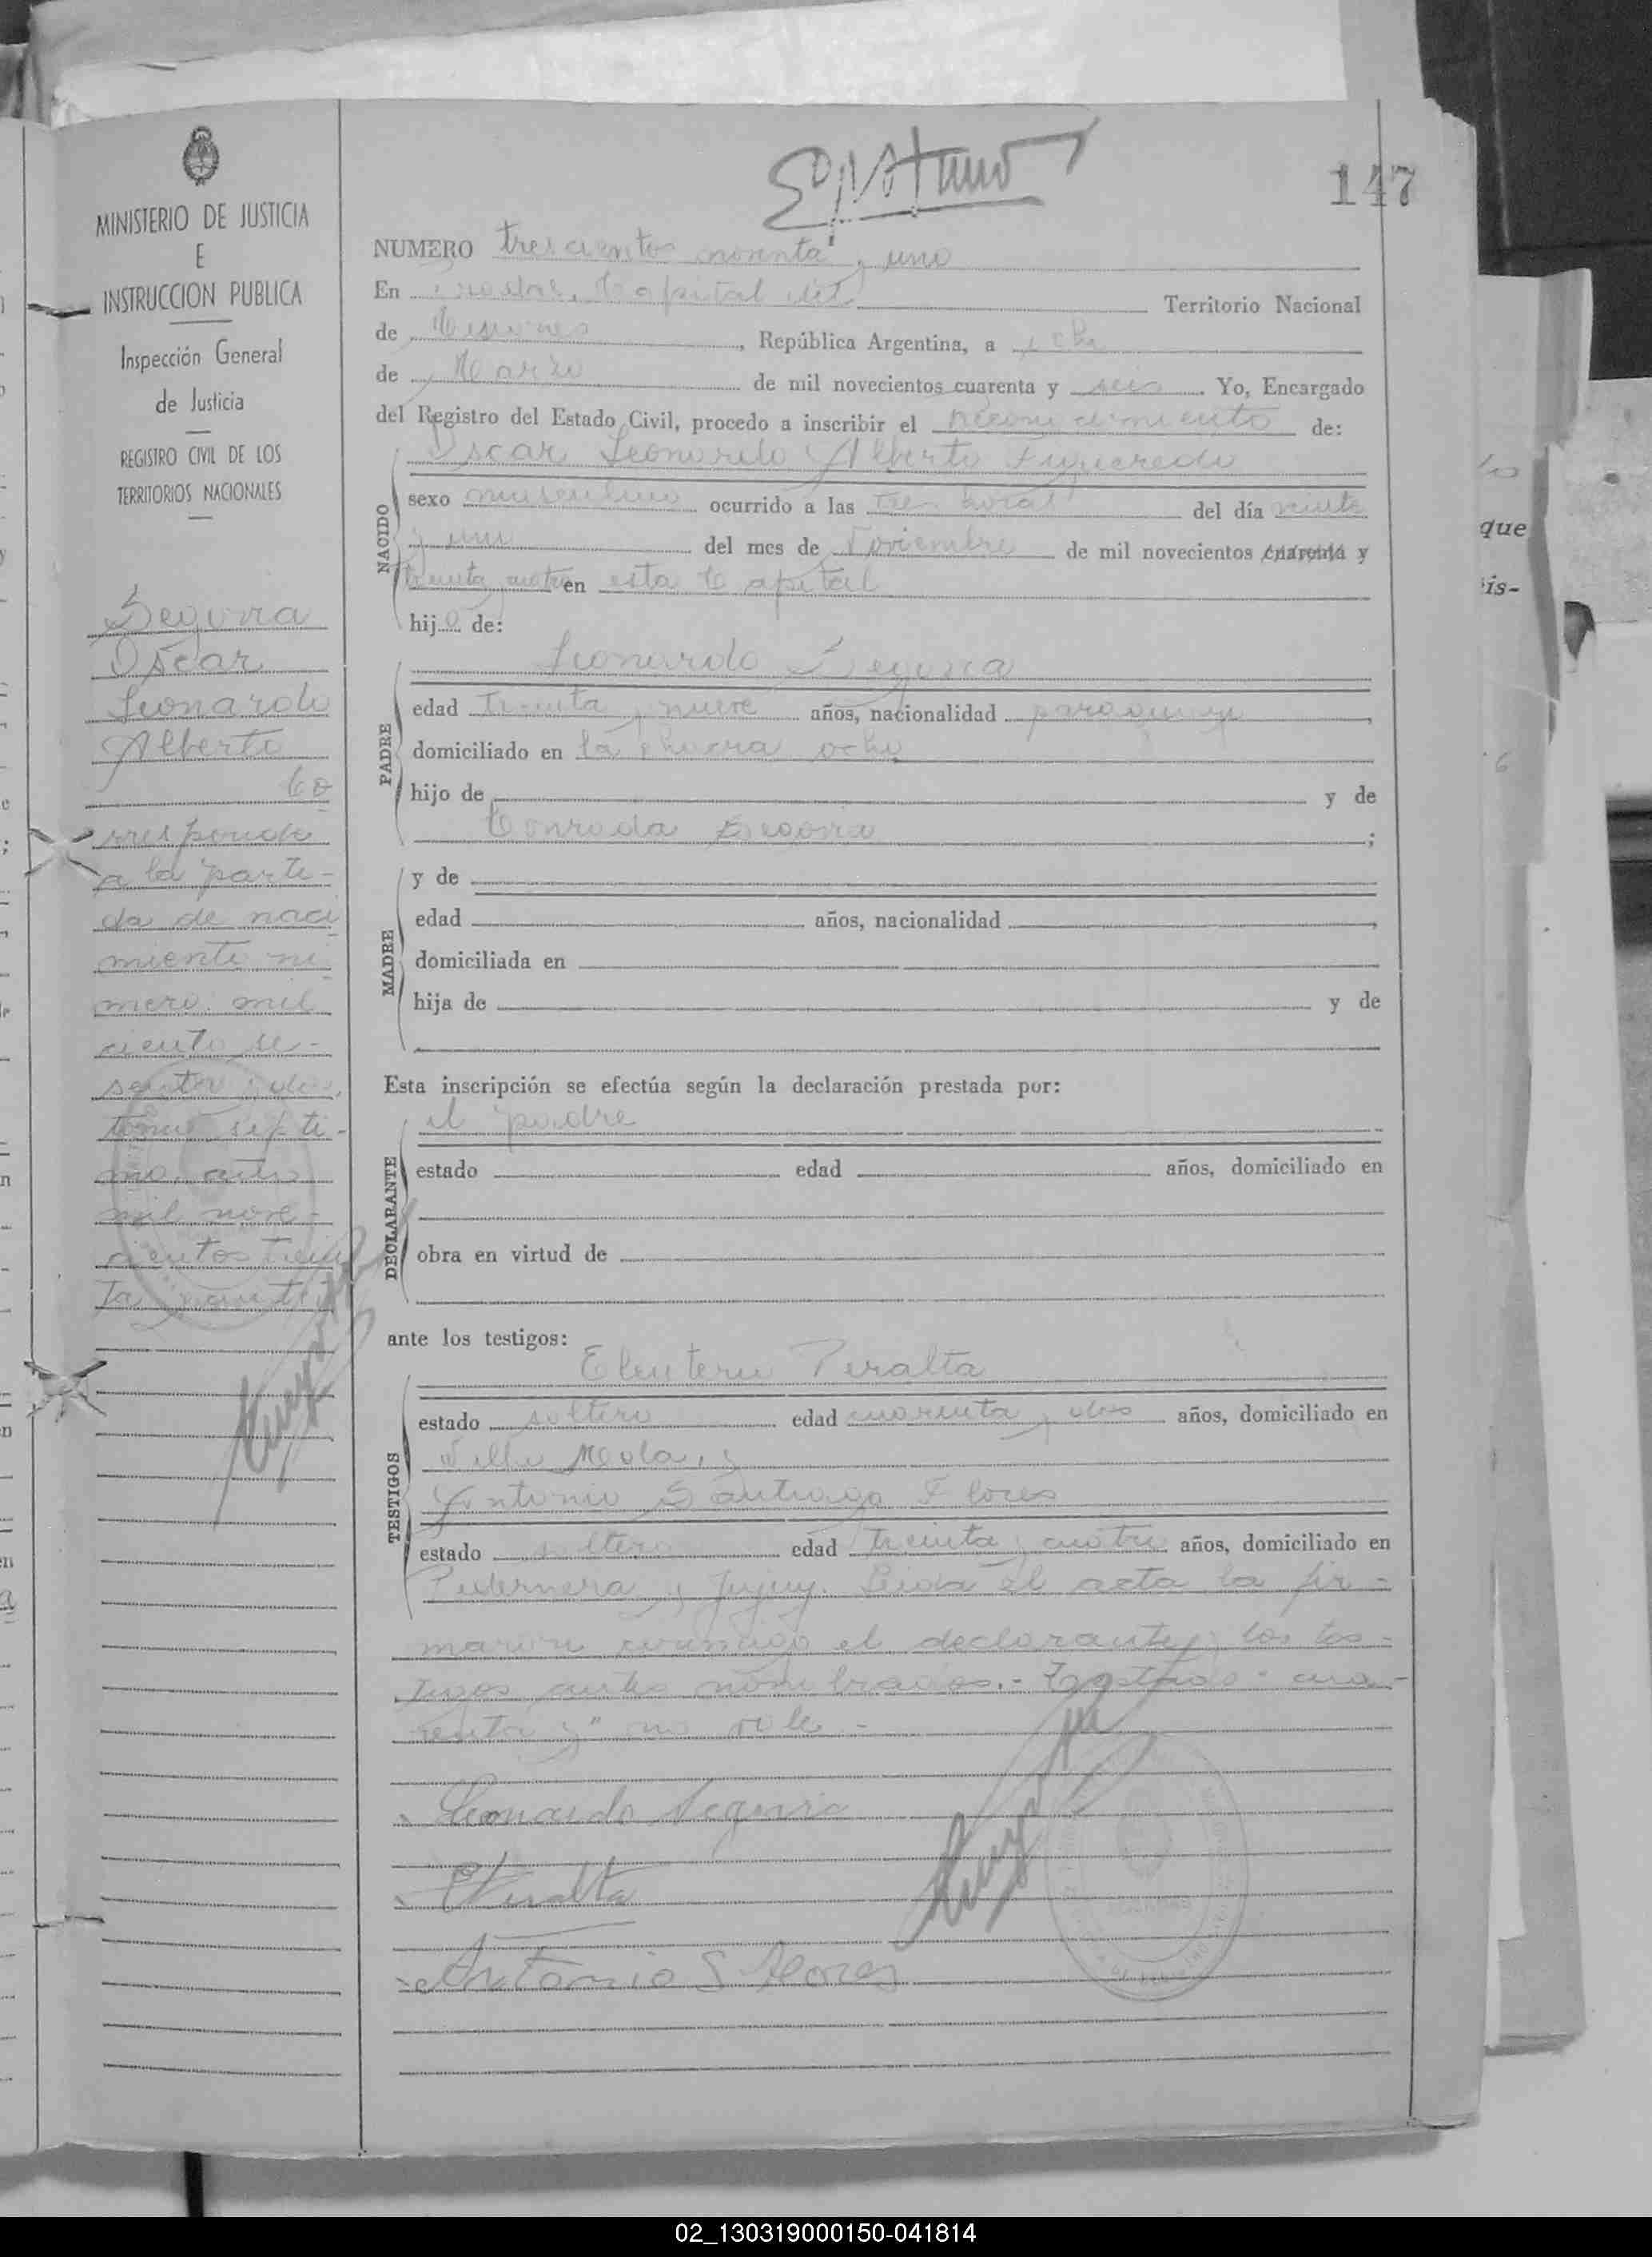 147
MINISTERIO DE JUSTICIA
E
INSTRUCCION PUBLICA
Inspección General
de Justicia
REGISTRO CIVIL DE LOS
TERRITORIOS NACIONALES
Segovia
Oscar
Leonardo
Alberto
Co
rresponde
a la parti-
da de naci
miento nú
mero mil
ciento se-
senta y dos,
tomo sépti-
mo, año
mil nove-
cientos trein
ta y cuatro
NUMERO trescientos noventa y uno
En Posadas, Capital del Territorio Nacional
de Misiones, República Argentina, a ocho
de Marzo de mil novecientos cuarenta y seis. Yo, Encargado
del Registro del Estado Civil, procedo a inscribir el reconocimiento de:
Oscar Leonardo Alberto Figueredo
NACIDO
sexo masculino ocurrido a las tres horas del día veinte
y uno del mes de Noviembre de mil novecientos cuarenta y
treinta y cuatro en esta Capital
hijo de:
Leonardo Segovia
PADRE
edad treinta y nueve años, nacionalidad paraguaya,
domiciliado en la chacra ocho
hijo de y de
Conrada Segovia;
MADRE
y de
edad años, nacionalidad
domiciliada en
hija de y de
Esta inscripción se efectúa según la declaración prestada por:
el padre
DECLARANTE
estado edad años, domiciliado en
obra en virtud de
ante los testigos:
Eleuterio Peralta
TESTIGOS
estado soltero edad cuarenta y dos años, domiciliado en
Villa Mola, y
Antonio Santiago Flores
estado soltero edad treinta y cuatro años, domiciliado en
Pedernera y Jujuy. Leída el acta la fir-
maron conmigo el declarante y los tes-
tigos antes nombrados.- Testado "cua-
renta y" no vale.-
Leonardo Segovia
EPeralta
Antonio S Flores
que
is-
02_130319000150-041814